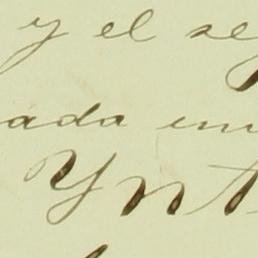 y el se
ada en
Ynt